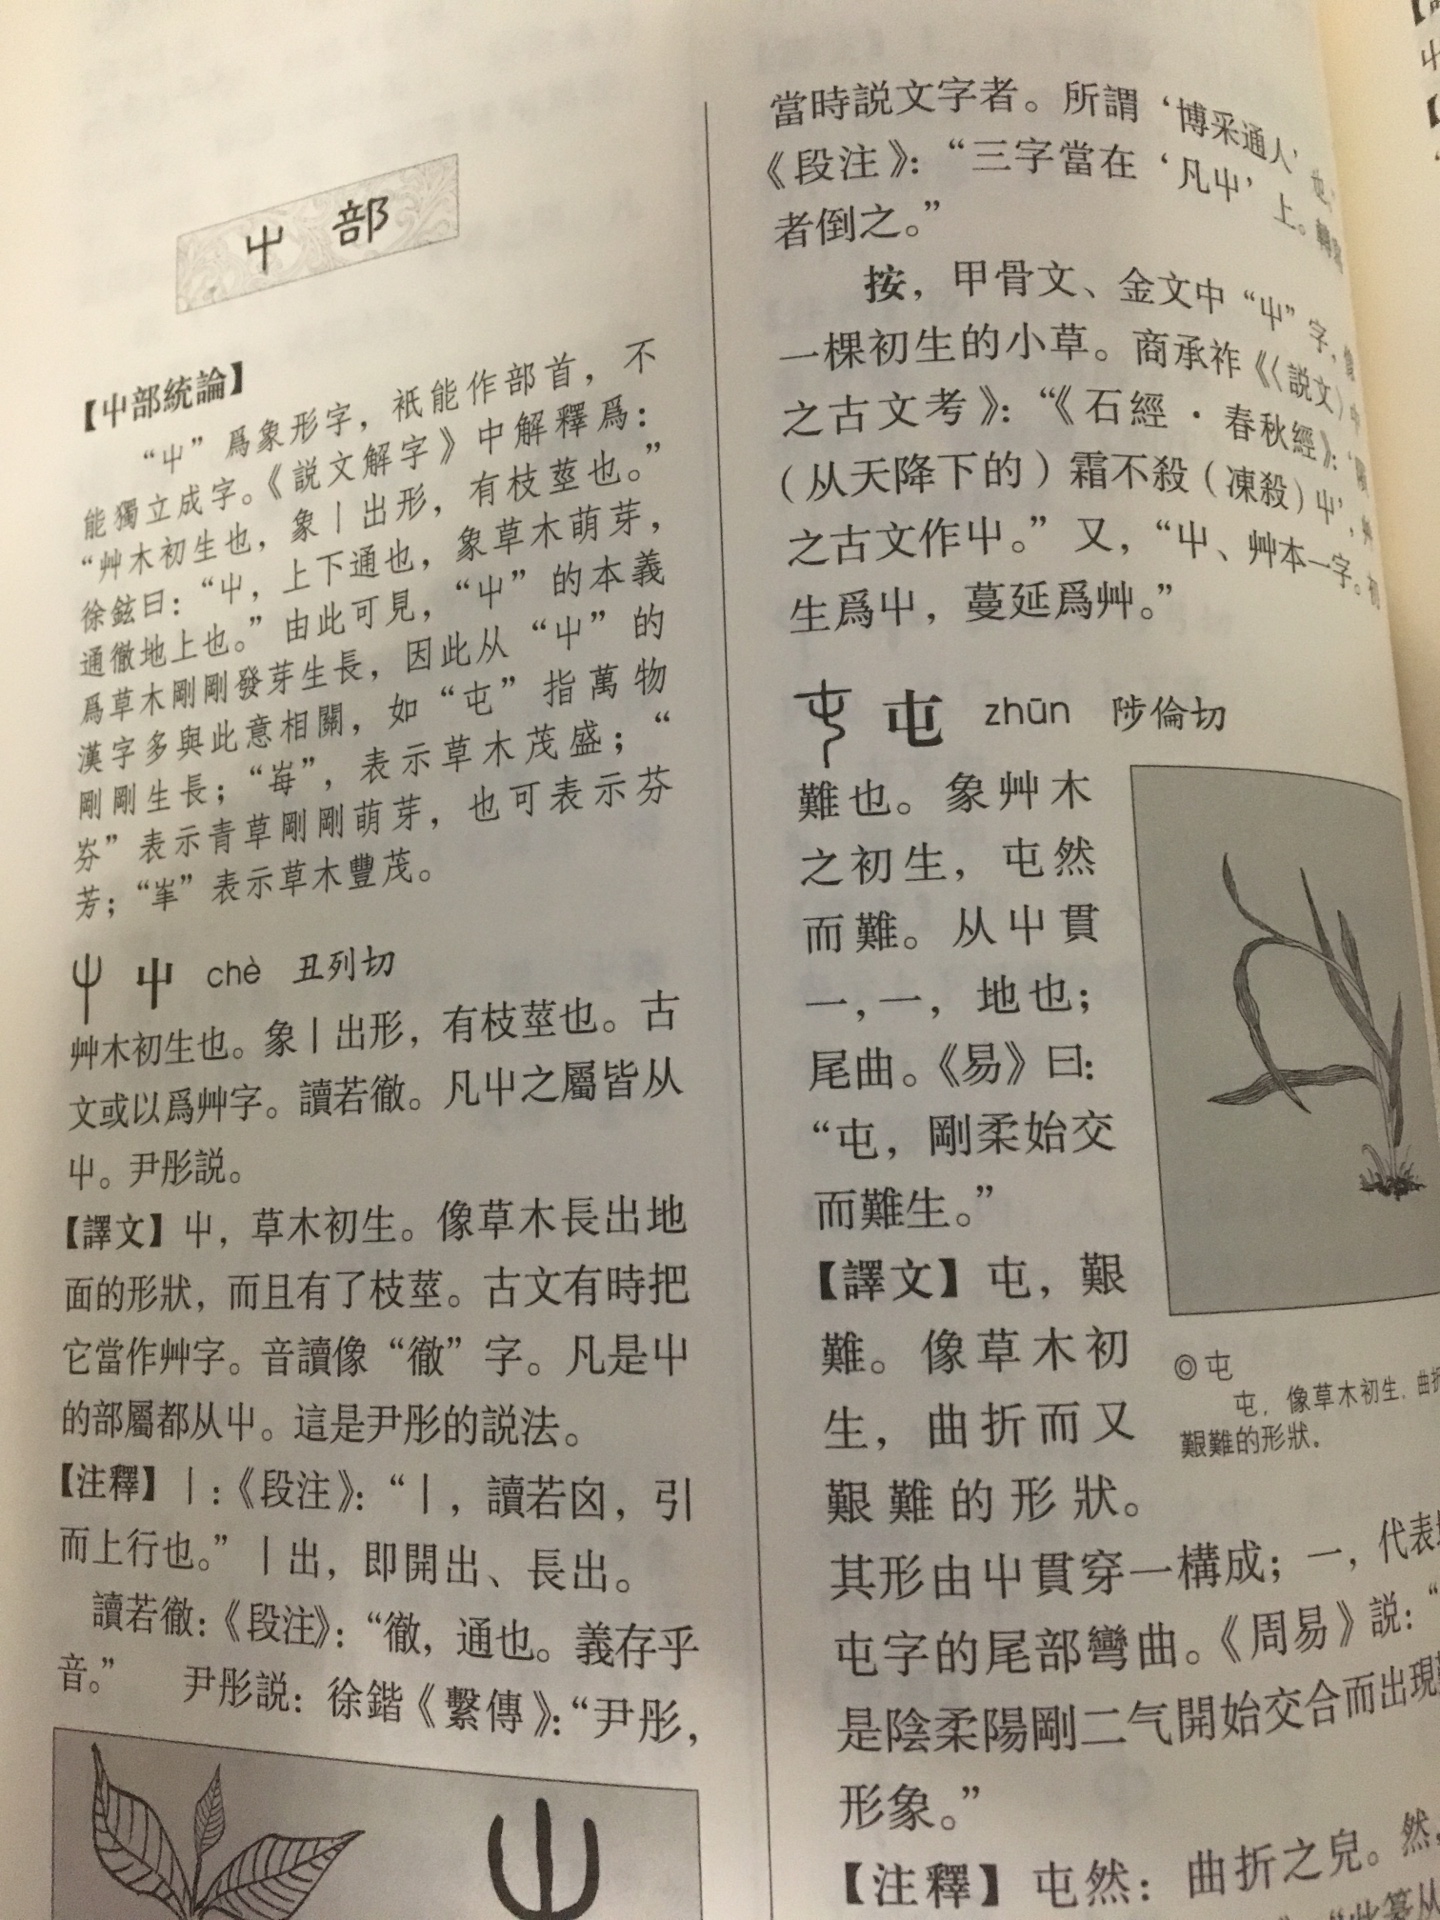 屮部
【屮部統論】
“屮”爲象形字，衹能作部首，不
能獨立成字。《説文解字》中解釋爲：
“艸木初生也，象丨出形，有枝莖也。”
徐鉉曰：“屮，上下通也，象草木萌芽，
通徹地上也。”由此可見，“屮”的本義
爲草木剛剛發芽生長，因此从“屮”的
漢字多與此意相關，如“屯”指萬物
剛剛生長；“毐”，表示草木茂盛；“
芬”表示青草剛剛萌芽，也可表示芬
芳；“峯”表示草木豐茂。
屮 屮 chè 丑列切
艸木初生也。象丨出形，有枝莖也。古
文或以爲艸字。讀若徹。凡屮之屬皆从
屮。尹彤説。
【譯文】屮，草木初生。像草木長出地
面的形狀，而且有了枝莖。古文有時把
它當作艸字。音讀像“徹”字。凡是屮
的部屬都从屮。這是尹彤的説法。
【注釋】丨：《段注》：“丨，讀若囟，引
而上行也。”丨出，即開出、長出。
讀若徹：《段注》：“徹，通也。義存乎
音。” 尹彤説：徐鍇《繫傳》：“尹彤，
屮
當時説文字者。所謂‘博采通人’也
《段注》：“三字當在‘凡屮’上。轉寫
者倒之。”
按，甲骨文、金文中“屮”字，像
一棵初生的小草。商承祚《〈説文〉中
之古文考》：“《石經·春秋經》：‘隕
（从天降下的）霜不殺（凍殺）屮’，艸
之古文作屮。”又，“屮、艸本一字。初
生爲屮，蔓延爲艸。”
屯 屯 zhūn 陟倫切
難也。象艸木
之初生，屯然
而難。从屮貫
一，一，地也；
尾曲。《易》曰：
“屯，剛柔始交
而難生。”
【譯文】屯，艱
難。像草木初
生，曲折而又
艱難的形狀。
其形由屮貫穿一構成；一，代表
屯字的尾部彎曲。《周易》説：“
是陰柔陽剛二气開始交合而出現
形象。”
【注釋】屯然：曲折之皃。然，
此篆从
◎屯
屯，像草木初生，曲折
艱難的形狀。